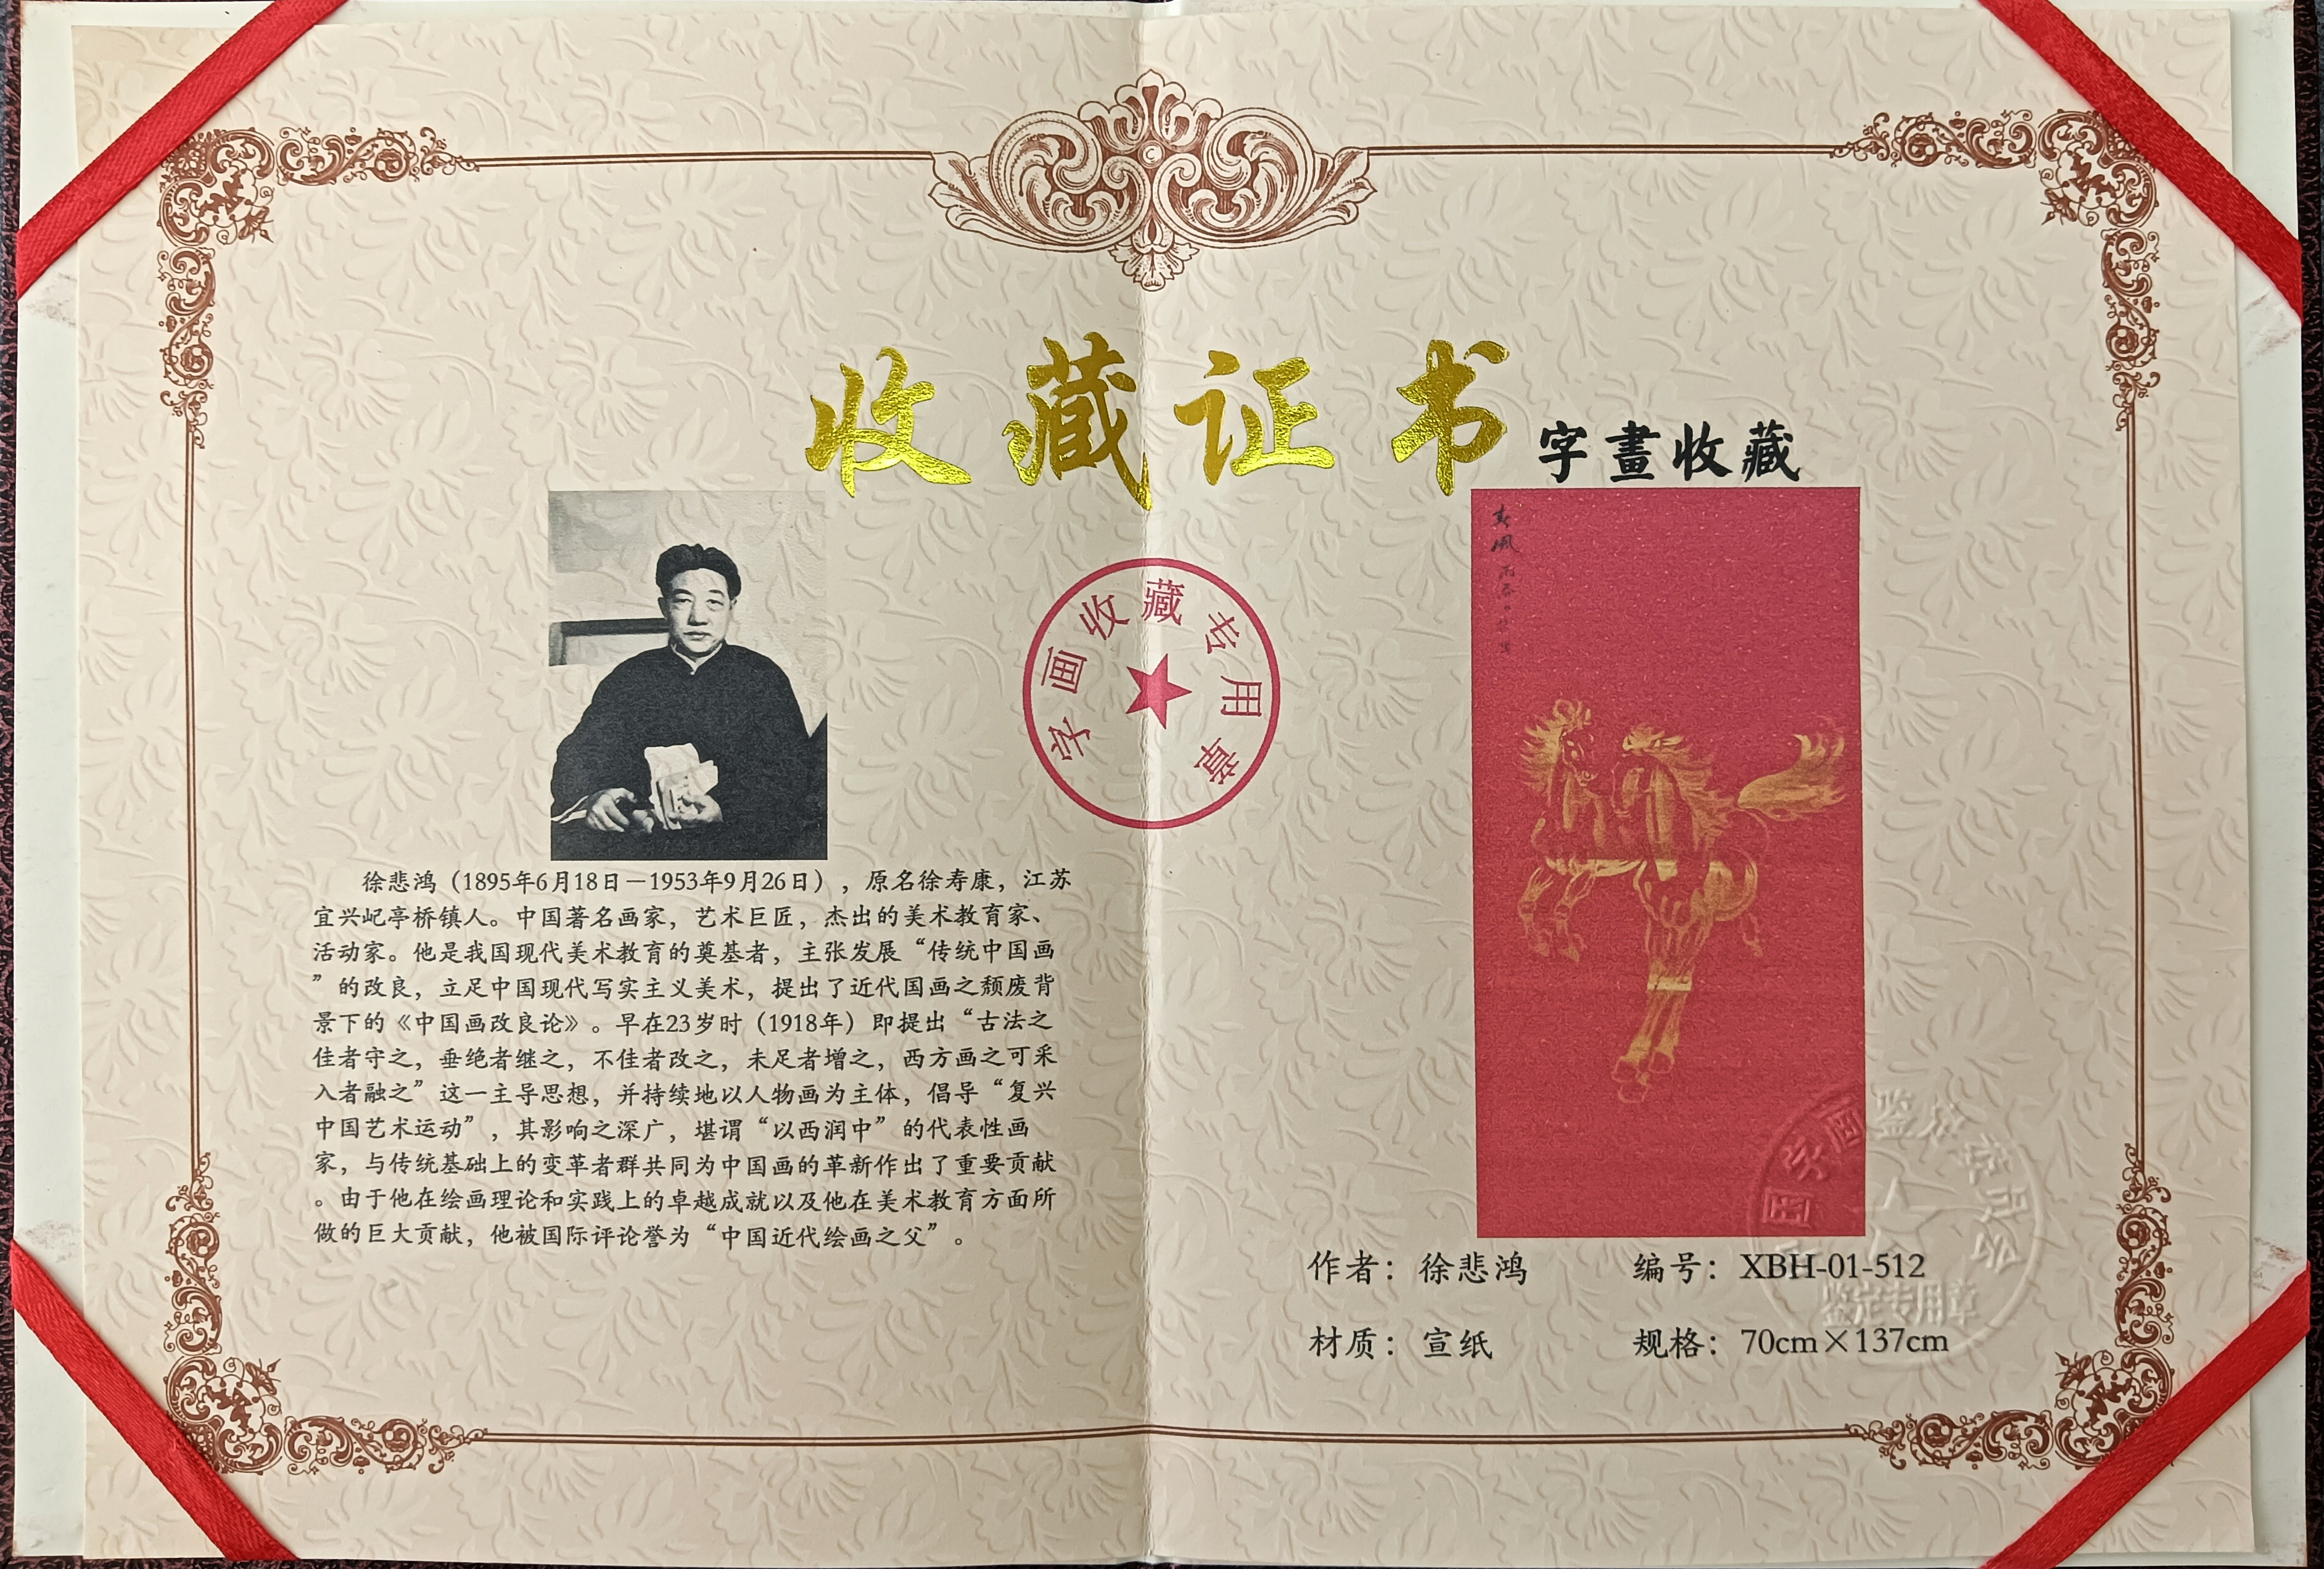 收藏证书
字畫收藏
字画收藏专用章
徐悲鸿（1895年6月18日－1953年9月26日），原名徐寿康，江苏
宜兴屺亭桥镇人。中国著名画家，艺术巨匠，杰出的美术教育家、
活动家。他是我国现代美术教育的奠基者，主张发展“传统中国画
”的改良，立足中国现代写实主义美术，提出了近代国画之颓废背
景下的《中国画改良论》。早在23岁时（1918年）即提出“古法之
佳者守之，垂绝者继之，不佳者改之，未足者增之，西方画之可采
入者融之”这一主导思想，并持续地以人物画为主体，倡导“复兴
中国艺术运动”，其影响之深广，堪谓“以西润中”的代表性画
家，与传统基础上的变革者群共同为中国画的革新作出了重要贡献
。由于他在绘画理论和实践上的卓越成就以及他在美术教育方面所
做的巨大贡献，他被国际评论誉为“中国近代绘画之父”。
作者：徐悲鸿 编号：XBH-01-512
材质：宣纸 规格：70cm×137cm
鉴定专用章